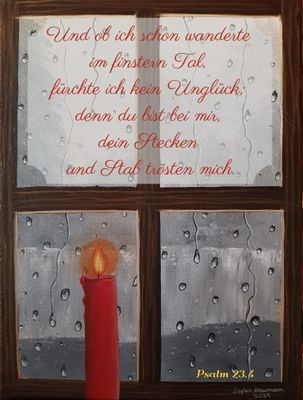 Und ob ich schon wanderte
im finstern Tal,
fürchte ich kein Unglück;
denn du bist bei mir,
dein Stecken
und Stab trösten mich.
Psalm 23,4
2021